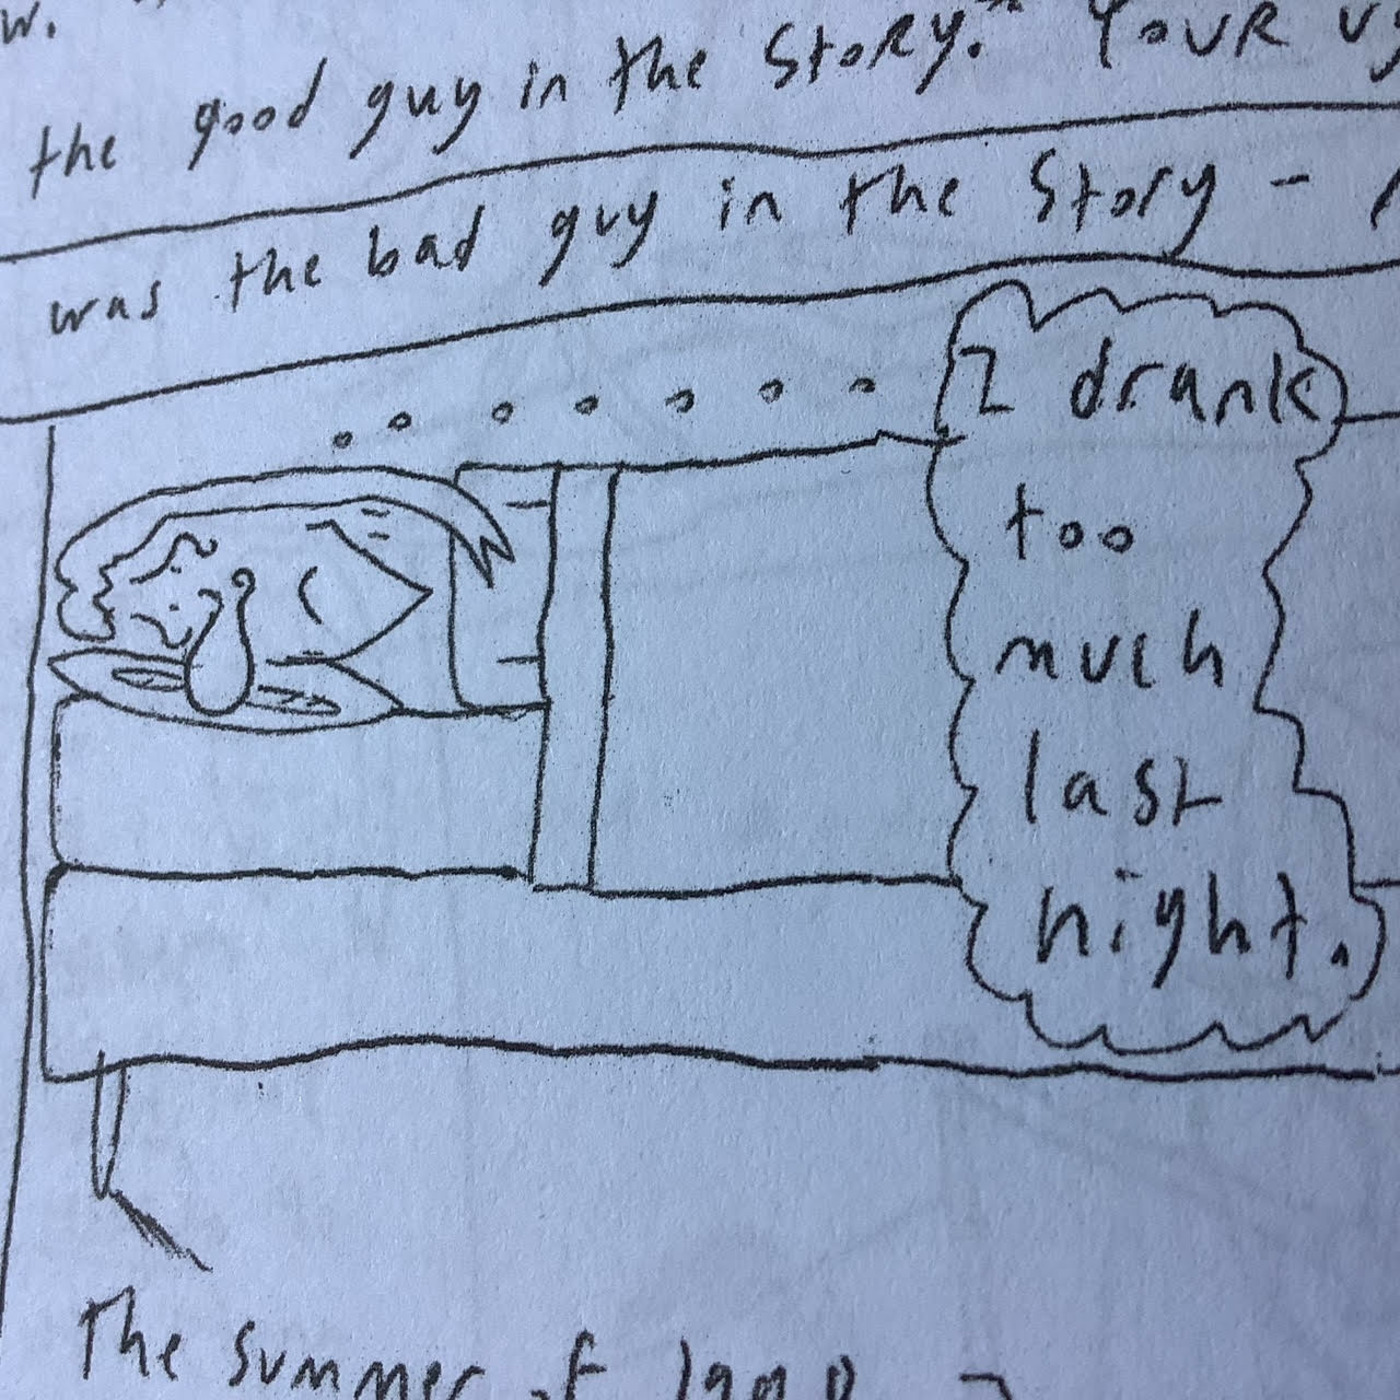 w.
the good guy in the Story." YOUR
was the bad guy in the Story -
I drank
too
much
last
night.
The summer of